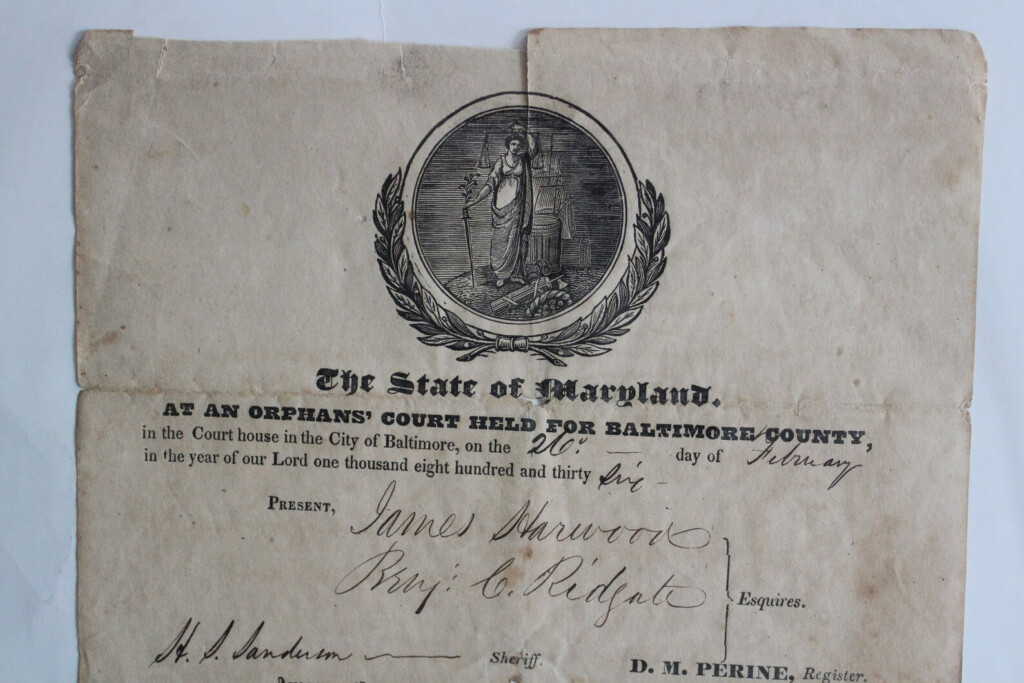 The State of Maryland.
AT AN ORPHANS' COURT HELD FOR BALTIMORE COUNTY,
in the Court house in the City of Baltimore, on the 26. — day of February
in the year of our Lord one thousand eight hundred and thirty six -
PRESENT, James Harwood
Benj: C. Ridgate
Esquires.
H. S. Sanderson — Sheriff.
D. M. PERINE, Register.